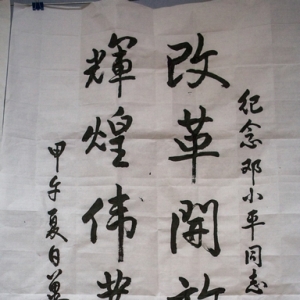 纪念邓小平同志
改革開放
輝煌伟业
甲午夏日